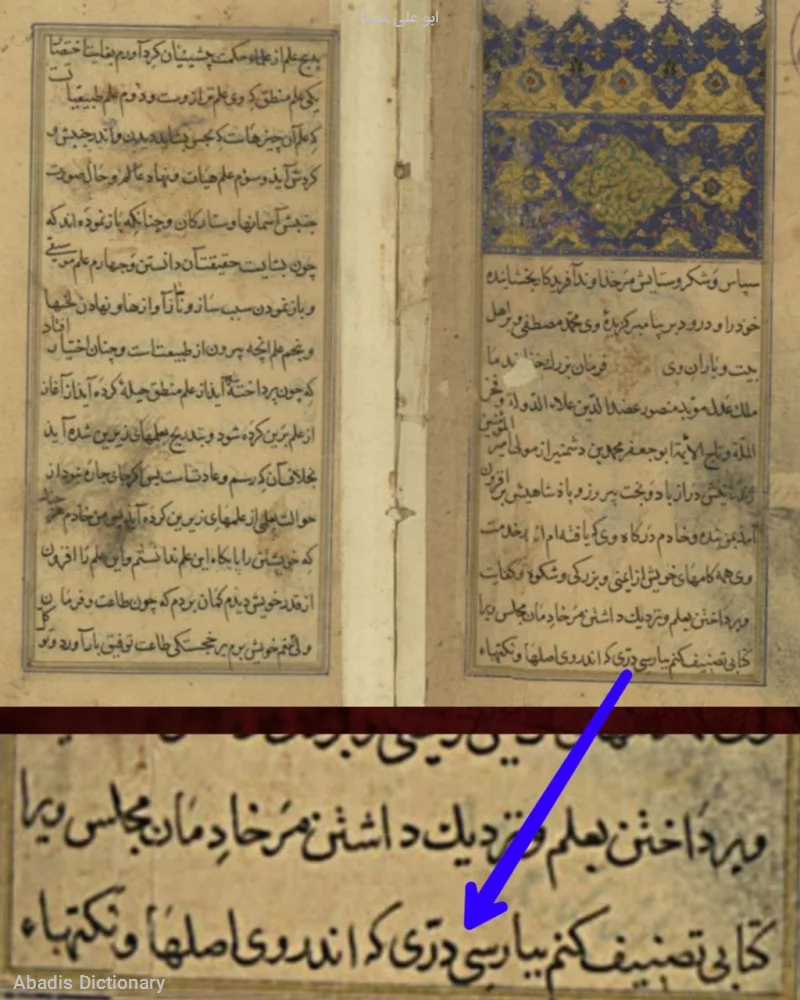 ابو علی سینا
سپاس و شکر و ستایش مر خداوند آفریدگار بخشاینده
خود را و درود بر پیامبر گزیدهٔ وی محمد مصطفی و بر اهل
بیت و یاران وی فرمان بزرگ خداوند ما
ملک عدل موید منصور عضد الدین علاء الدولة و فخر
الملة و تاج الائمة ابو جعفر محمد بن دشمنزار مولی امیر المؤمنین
زندگانیش دراز باد و بخت پیروز و پادشاهیش بر افزون
آمد بمن بنده و خادم درگاه وی که یافته‌ام اندر خدمت
وی همه کامهای خویش از ایمنی و بزرگی و شکوه و کفایت
و پرداختن بعلم و نزدیک داشتن مر خادمان مجلس ویرا
کتابی تصنیف کنم بپارسی درّی که اندر وی اصلها و نکتهاء
پنج علم از علمهاء حکمت پیشینیان گرد آورم بغایت اختصار
یکی علم منطق که وی علم ترازوست و دوم علم طبیعیات
که علم آن چیزهاست که بحس بشاید دیدن و اندر جنبش و
گردش آیند و سوم علم هیات و نهاد عالم و حال صورت
جنبش آسمانها و ستارگان و چنانکه باز نموده‌اند که
چون بشایست حقیقت آن دانستن و چهارم علم موسیقی
و باز نمودن سبب ساز و ناساز آوازها و نهادن لحنها
و پنجم علم آنچه بیرون از طبیعت است و چنان اختیار افتاد
که چون پرداخته آید از علم منطق حیله کرده آید از آغاز
از علم برین کرده شود و بتدریج بعلمهای زیرین شده آید
بخلاف آن که رسم و عادتست پس اگر جای چاره نبود از
حوالت بعلمی از علمهای زیرین کرده آید پس من خادم هر چند
که خویشتن را پایگاه این علم ندانستم و این علم را افزون
از قدر خویش دیدم گمان بردم که چون طاعت و فرمان
ولی نعم خویش برم بر خجستگی طاعت توفیق بار آورد و توکل
و پرداختن بعلم و نزدیک داشتن مر خادِمان مجلس ویرا
کتابی تصنیف کنم بپارسی درّی که اندر وی اصلها و نکتهاء
Abadis Dictionary